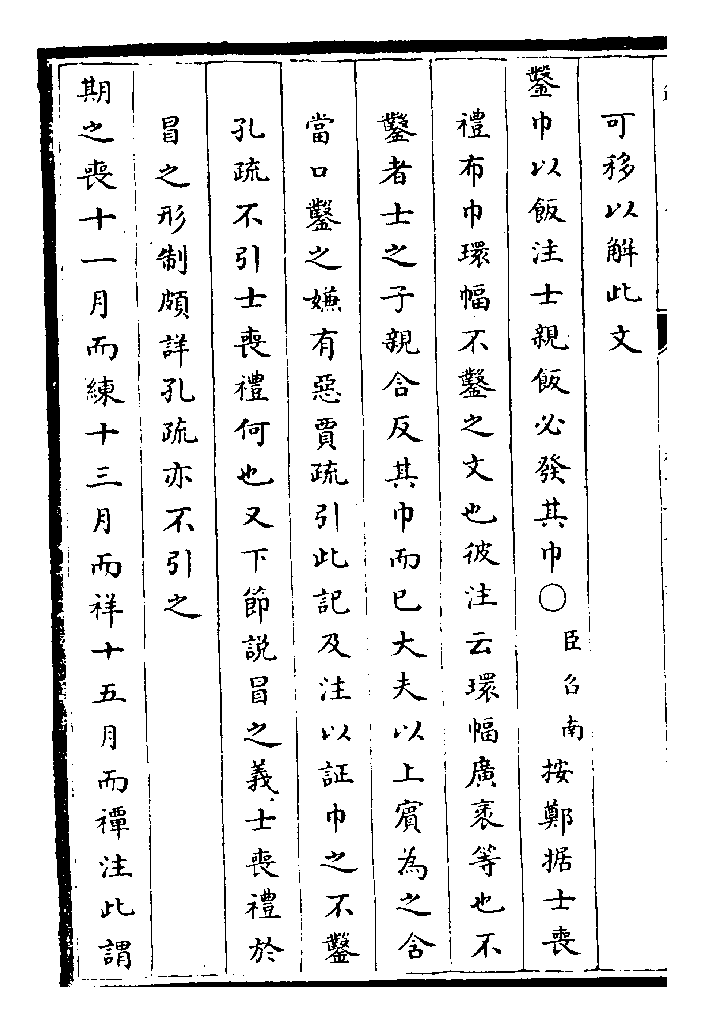 可移以解此文
鑿巾以飯注士親飯必發其巾○臣召南按鄭据士喪
禮布巾環幅不鑿之文也彼注云環幅廣袤等也不
鑿者士之子親含反其巾而已大夫以上賓為之含
當口鑿之嫌有惡賈疏引此記及注以証巾之不鑿
孔疏不引士喪禮何也又下節説冒之義士喪禮於
冒之形制頗詳孔疏亦不引之
期之喪十一月而練十三月而祥十五月而禫注此謂